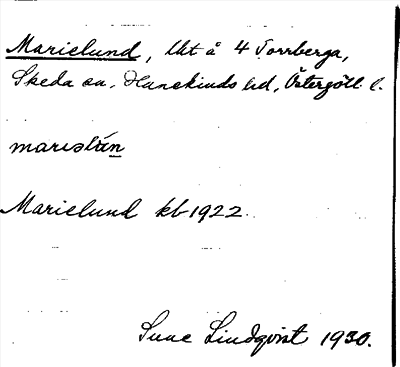 Marielund, lht å 4 Torrberga,
Skeda sn, Hanekinds hd, Östergötl. l.
marıəlɯ́n
Marielund kb 1922.
Sune Lindqvist 1930.